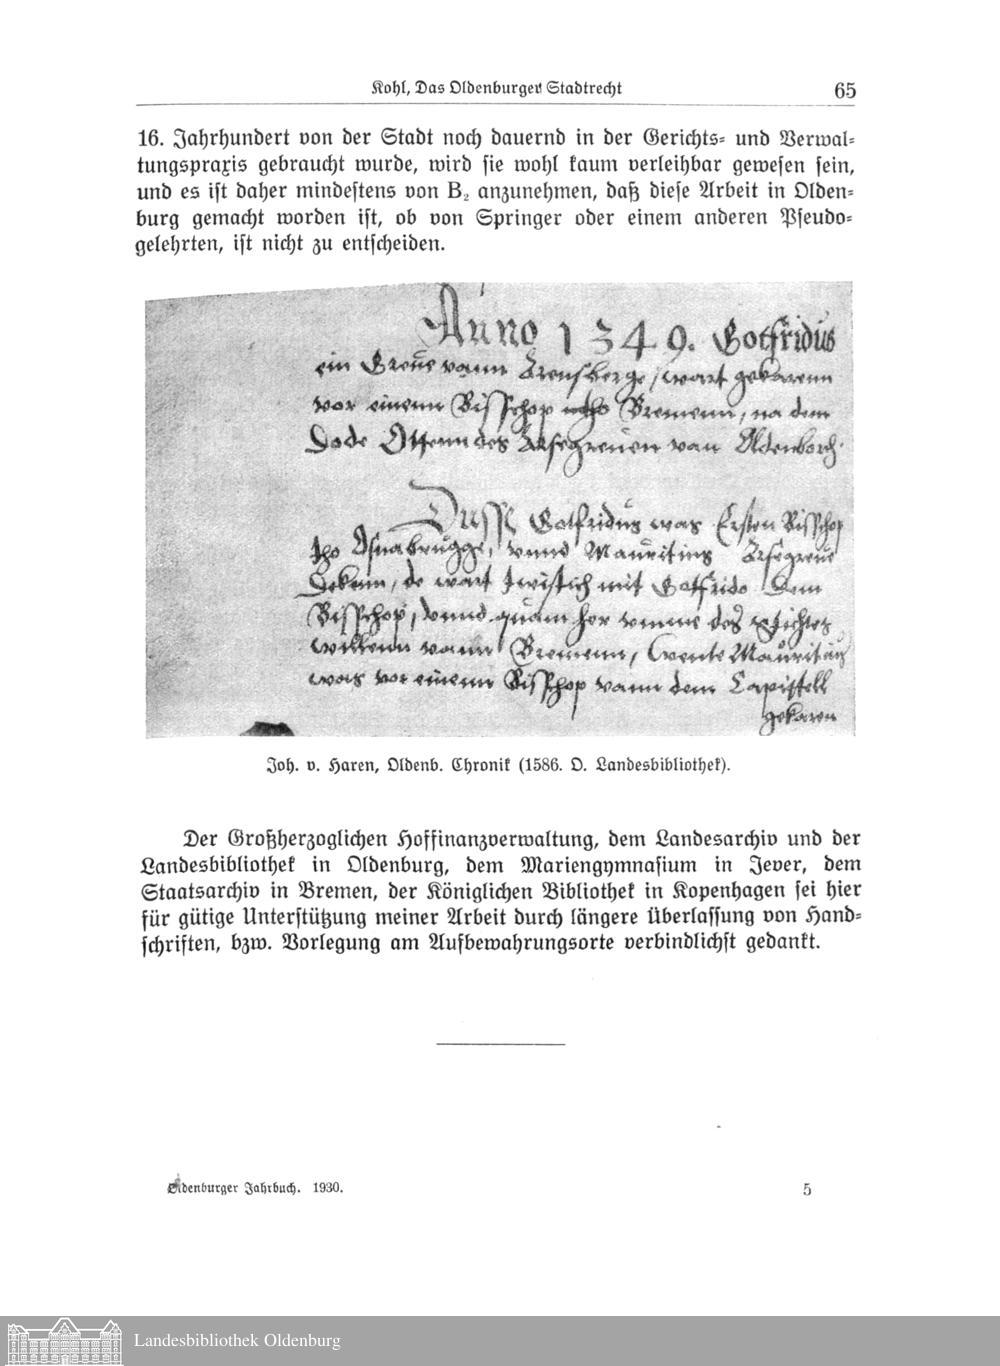 Kohl, Das Oldenburger Stadtrecht 65
16. Jahrhundert von der Stadt noch dauernd in der Gerichts- und Verwal-
tungspraxis gebraucht wurde, wird sie wohl kaum verleihbar gewesen sein,
und es ist daher mindestens von B₂ anzunehmen, daß diese Arbeit in Olden-
burg gemacht worden ist, ob von Springer oder einem anderen Pseudo-
gelehrten, ist nicht zu entscheiden.
Anno 1349. Gotfridus
ein Greve vann Arensberge, wart gekarenn
vor einenn Bisschop tho Bremenn, na dem
Dode Ottenn des Ertzgreuen van Oldenborch.
Dusse Gotfridus was Ersten Bisschop
tho Osnabrugge, vnnd Mauritius
Dekenn, de wart twistich mit Gotfrido Dem
Bisschop, vnnd quam her vmme des Stichtes
willenn vann Bremenn, wente Mauritius
was vor einenn Bisschop vann dem Capittell
gekaren
Joh. v. Haren, Oldenb. Chronik (1586. O. Landesbibliothek).
Der Großherzoglichen Hoffinanzverwaltung, dem Landesarchiv und der
Landesbibliothek in Oldenburg, dem Mariengymnasium in Jever, dem
Staatsarchiv in Bremen, der Königlichen Bibliothek in Kopenhagen sei hier
für gütige Unterstützung meiner Arbeit durch längere Überlassung von Hand-
schriften, bzw. Vorlegung am Aufbewahrungsorte verbindlichst gedankt.
Oldenburger Jahrbuch. 1930. 5
Landesbibliothek Oldenburg